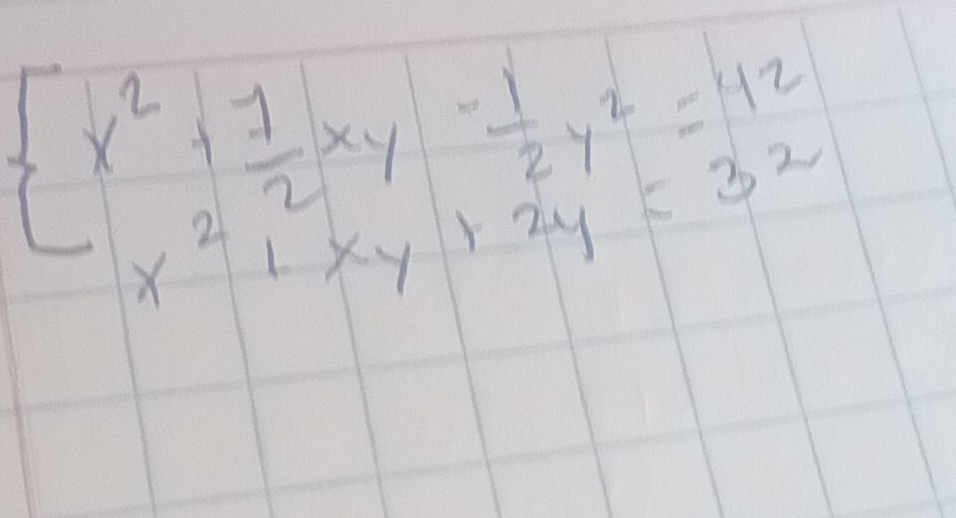 { x² + 7/2 xy - 1/2 y² = 42
x² + xy + 2y = 32